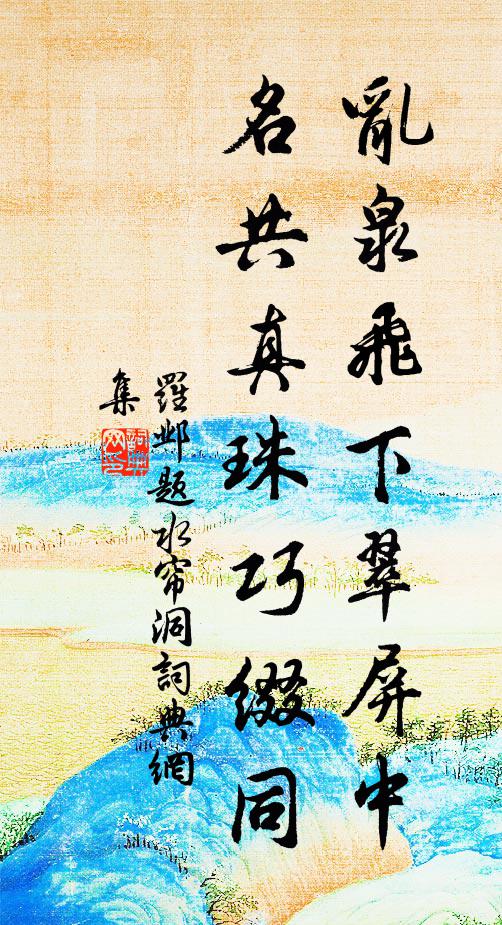 亂泉飛下翠屏中
名共真珠巧綴同
羅鄴題水帘洞詞典網
集